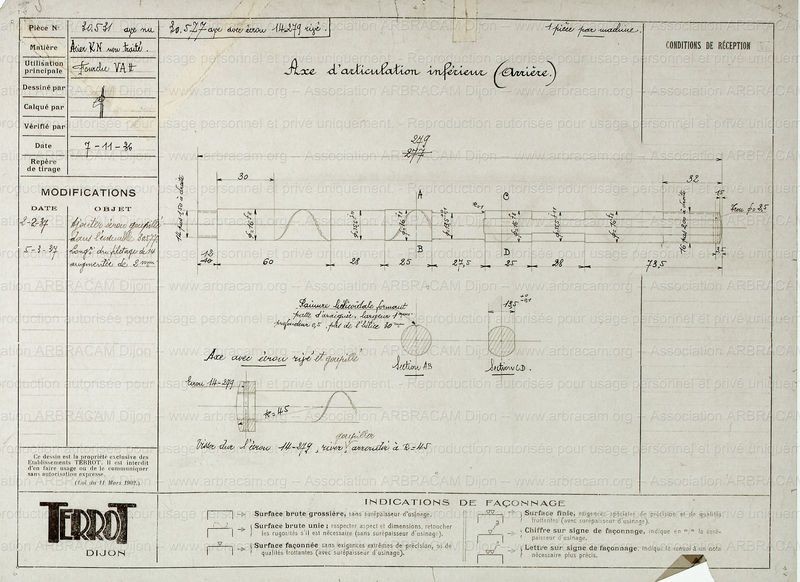 Pièce N° 20.531 axe nu
20.577 axe avec écrou 14279 rivé.
1 pièce par machine.
CONDITIONS DE RÉCEPTION
Matière Acier KN non traité.
Utilisation principale Fourche VAH
Dessiné par
Calqué par
Vérifié par
Date 7-11-36
Repère de tirage
Axe d'articulation inférieur (Arrière.)
MODIFICATIONS
DATE OBJET
2-2-37 Ajouter écrou goupillé
5-3-37 Longr du filetage de 14
augmentée de 2mm
249
277
30
32
A
C
B
D
12
10
60
28
25
27,5
25
28
73,5
Rainure hélicoïdale formant
patte d'araignée, largeur 1mm
profondeur 0,5, pas de l'hélice 30mm
13,5
Section AB
Section CD.
Axe avec écrou rivé et goupillé
Ecrou 14-279
R=45
goupiller
Visser dur l'écrou 14-279, river, arrondir à R=45
Ce dessin est la propriété exclusive des
Etablissements TERROT. Il est interdit
d'en faire usage ou de le communiquer
sans autorisation expresse.
(Loi du 11 Mars 1902.)
TERROT
DIJON
INDICATIONS DE FAÇONNAGE
Surface brute grossière, sans surépaisseur d'usinage.
Surface brute unie; respecter aspect et dimensions, retoucher
les rugosités s'il est nécessaire (sans surépaisseur d'usinage).
Surface façonnée sans exigences extrêmes de précision, ni de
qualités frottantes (avec surépaisseur d'usinage).
Surface finie, exigences spéciales de précision et de qualités
frottantes (avec surépaisseur d'usinage).
Chiffre sur signe de façonnage, indique en m/m la surépaisseur
d'usinage.
Lettre sur signe de façonnage, indique le renvoi à un nota
nécessaire plus précis.
www.arbracam.org – Association ARBRACAM Dijon – Reproduction autorisée pour usage personnel et privé uniquement.